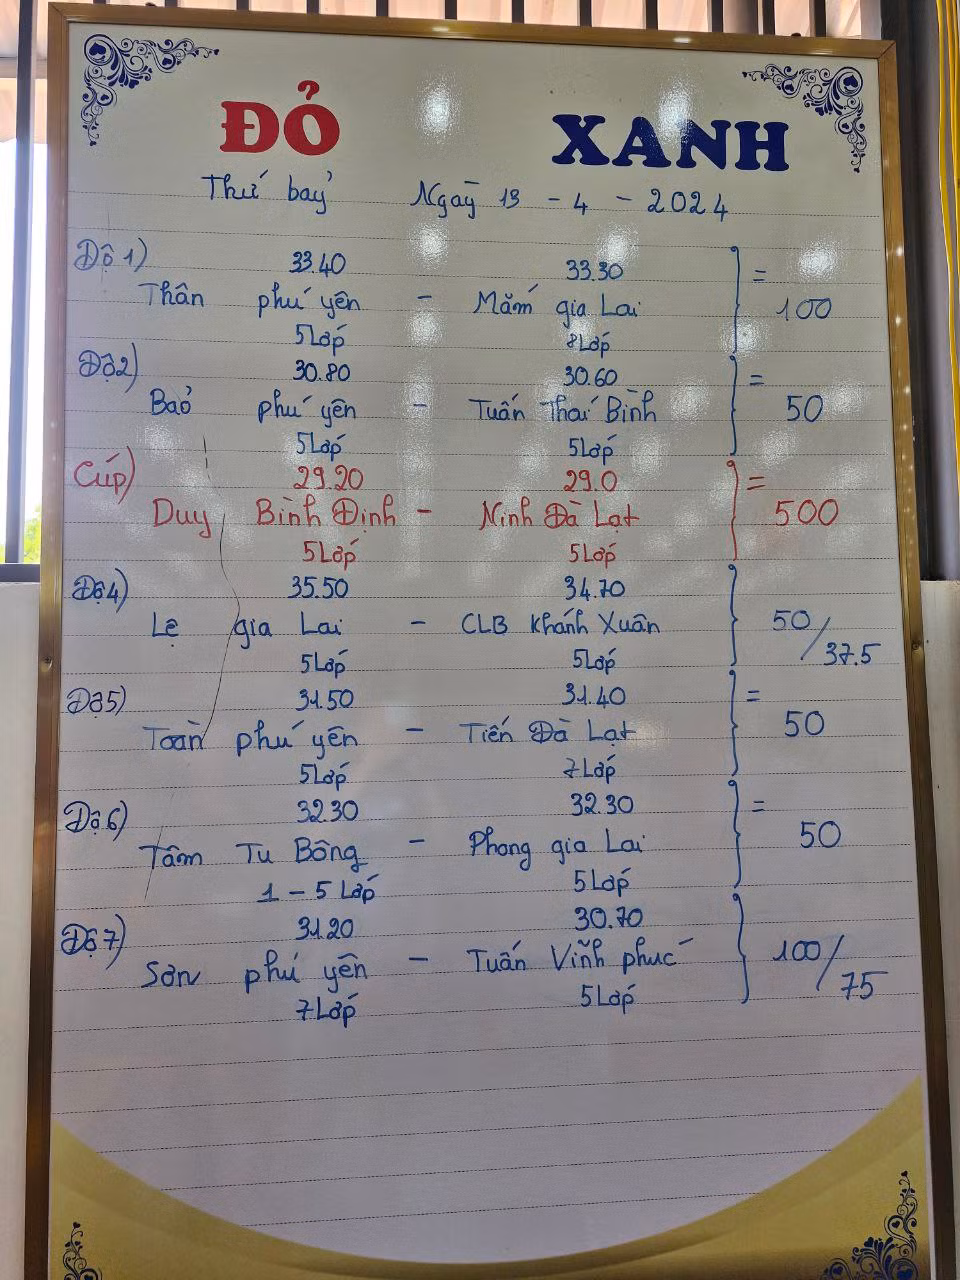 ĐỎ XANH
Thứ bảy Ngày 13 - 4 - 2024
Độ 1) 33.40 33.30 =
Thân phú yên - Mắm gia Lai 100
5 Lớp 8 Lớp
Độ 2) 30.80 30.60 =
Bảo phú yên - Tuấn Thái Bình 50
5 Lớp 5 Lớp
Cúp) 29.20 29.0 =
Duy Bình Định - Ninh Đà Lạt 500
5 Lớp 5 Lớp
Độ 4) 35.50 34.70
Lẹ gia Lai - CLB Khánh Xuân 50/37.5
5 Lớp 5 Lớp
Độ 5) 31.50 31.40 =
Toàn phú yên - Tiến Đà Lạt 50
5 Lớp 7 Lớp
Độ 6) 32.30 32.30 =
Tâm Tu Bông - Phong gia Lai 50
1 - 5 Lớp 5 Lớp
Độ 7) 31.20 30.70
Sơn phú yên - Tuấn Vĩnh phúc 100/75
7 Lớp 5 Lớp